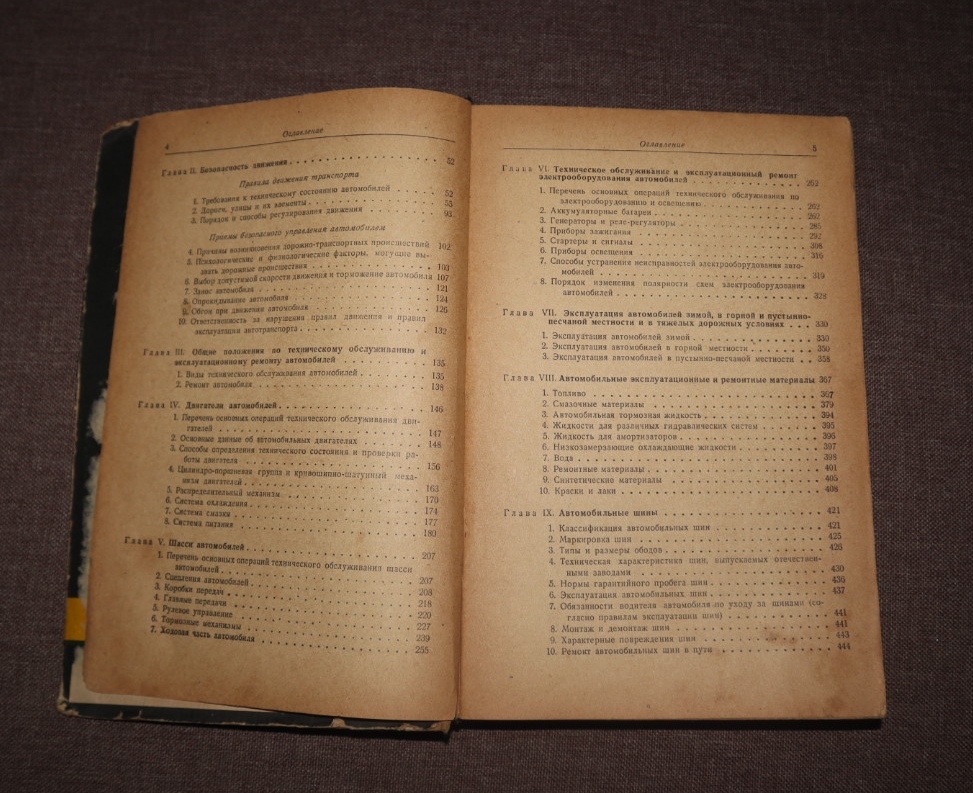 4
Оглавление
Глава II. Безопасность движения 52
Правила движения транспорта
1. Требования к техническому состоянию автомобилей 52
2. Дороги, улицы и их элементы 55
3. Порядок и способы регулирования движения 93
Приемы безопасного управления автомобилем
4. Причины возникновения дорожно-транспортных происшествий 102
5. Психологические и физиологические факторы, могущие вы-
звать дорожные происшествия 103
6. Выбор допустимой скорости движения и торможение автомобиля 107
7. Занос автомобиля 121
8. Опрокидывание автомобиля 124
9. Обгон при движении автомобиля 126
10. Ответственность за нарушения правил движения и правил
эксплуатации автотранспорта 132
Глава III. Общие положения по техническому обслуживанию и
эксплуатационному ремонту автомобилей 135
1. Виды технического обслуживания автомобилей 135
2. Ремонт автомобиля 138
Глава IV. Двигатели автомобилей 146
1. Перечень основных операций технического обслуживания дви-
гателей 147
2. Основные данные об автомобильных двигателях 148
3. Способы определения технического состояния и проверки ра-
боты двигателя 156
4. Цилиндро-поршневая группа и кривошипно-шатунный меха-
низм двигателей 163
5. Распределительный механизм 170
6. Система охлаждения 174
7. Система смазки 177
8. Система питания 180
Глава V. Шасси автомобилей 207
1. Перечень основных операций технического обслуживания шасси
автомобилей 207
2. Сцепления автомобилей 208
3. Коробки передач 218
4. Главные передачи 220
5. Рулевое управление 227
6. Тормозные механизмы 239
7. Ходовая часть автомобиля 255
Оглавление
5
Глава VI. Техническое обслуживание и эксплуатационный ремонт
электрооборудования автомобилей 262
1. Перечень основных операций технического обслуживания по
электрооборудованию и освещению 262
2. Аккумуляторные батареи 262
3. Генераторы и реле-регуляторы 285
4. Приборы зажигания 292
5. Стартеры и сигналы 308
6. Приборы освещения 316
7. Способы устранения неисправностей электрооборудования авто-
мобилей 319
8. Порядок изменения полярности схем электрооборудования
автомобилей 328
Глава VII. Эксплуатация автомобилей зимой, в горной и пустынно-
песчаной местности и в тяжелых дорожных условиях 330
1. Эксплуатация автомобилей зимой 330
2. Эксплуатация автомобилей в горной местности 350
3. Эксплуатация автомобилей в пустынно-песчаной местности 358
Глава VIII. Автомобильные эксплуатационные и ремонтные материалы 367
1. Топливо 367
2. Смазочные материалы 379
3. Автомобильная тормозная жидкость 394
4. Жидкости для различных гидравлических систем 395
5. Жидкость для амортизаторов 396
6. Низкозамерзающие охлаждающие жидкости 397
7. Вода 398
8. Ремонтные материалы 401
9. Синтетические материалы 405
10. Краски и лаки 408
Глава IX. Автомобильные шины 421
1. Классификация автомобильных шин 421
2. Маркировка шин 425
3. Типы и размеры ободов 426
4. Техническая характеристика шин, выпускаемых отечествен-
ными заводами 430
5. Нормы гарантийного пробега шин 436
6. Эксплуатация автомобильных шин 437
7. Обязанности водителя автомобиля по уходу за шинами (со-
гласно правилам эксплуатации шин) 441
8. Монтаж и демонтаж шин 441
9. Характерные повреждения шин 443
10. Ремонт автомобильных шин в пути 444